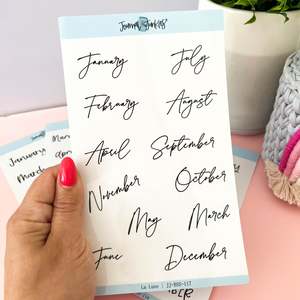 Journal Junkies
January July
February August
April September
November October
May March
June December
La Luna | 12-BOO-LLT
January Mar
March Apr